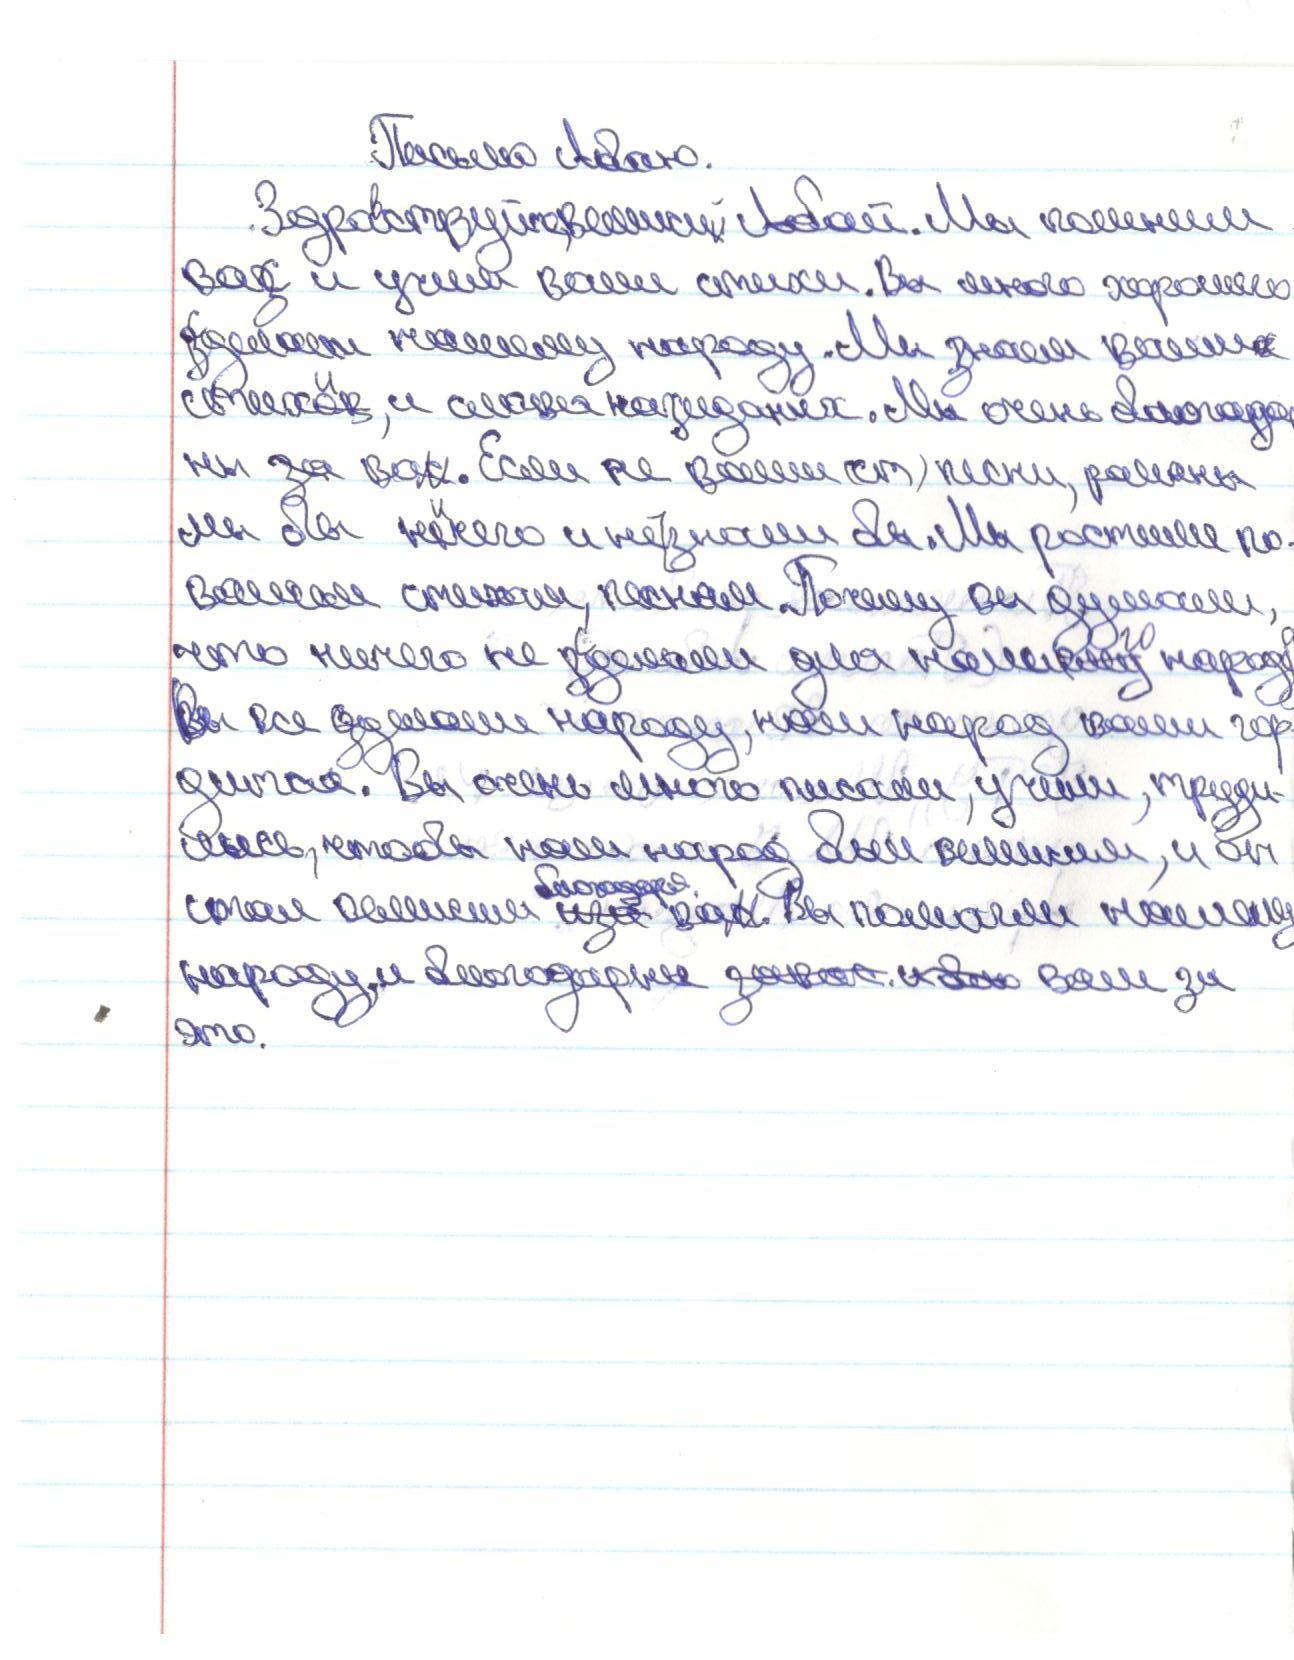 Письмо Абаю.
Здравствуйте, великий Абай. Мы помним
вас и учим ваши стихи. Вы много хорошего
сделали нашему народу. Мы знаем ваши
стихи, и слова назидания. Мы очень благодар
ны за вас. Если не ваши (ст) песни, романы
мы бы ничего и не знали бы. Мы ростили по
вашим стихам, песням. Почему вы думали,
что ничего не сделали для нашего народу
Вы все сделали народу, наш народ вами гор
дится. Вы очень много писали, учили, труди-
лысь, чтобы наш народ был великим, и он
стал великим благодаря вас. Вы помогли нашему
народу, и благодарны вам за
это.